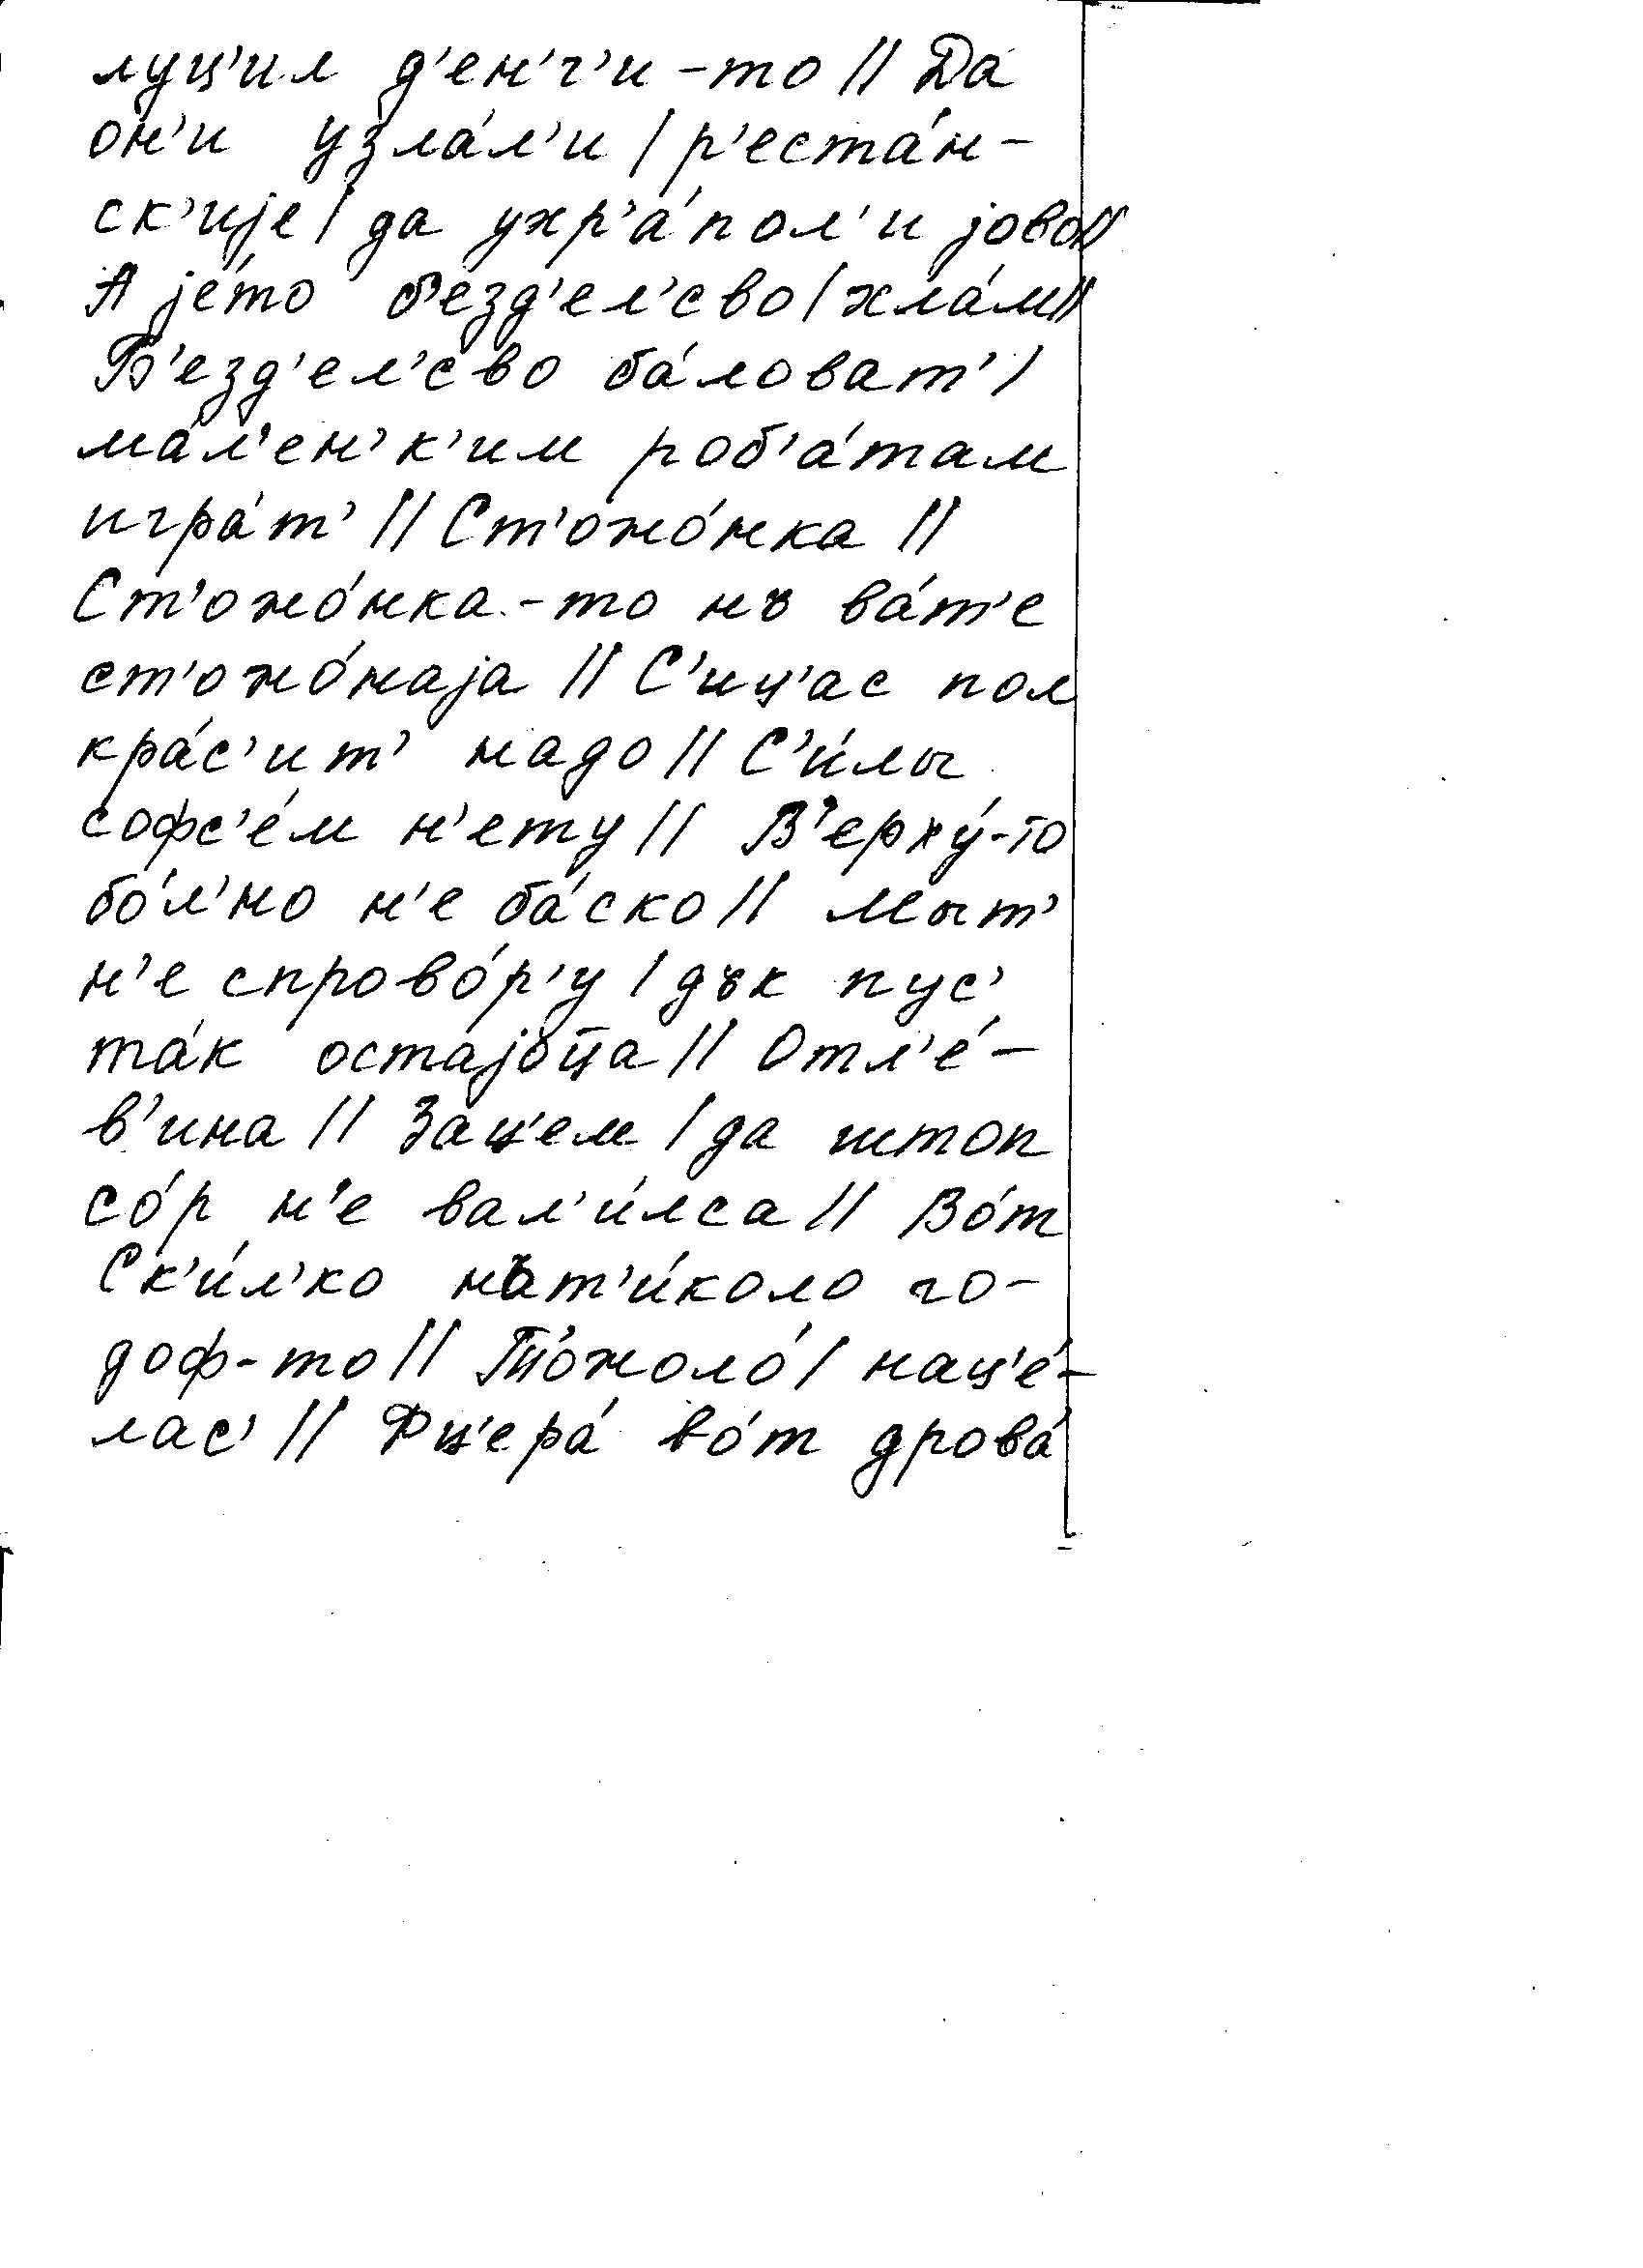 луц'ил д'ен'г'и-то || Да
он'и узла́л'и | р'еста́н-
ск'ије | да ухр'а́пол'и јово||
А је́то б'езд'ел'сво | хла́м||
Б'езд'ел'сво ба́ловат' |
ма́л'ен'к'им роб'а́там
игра́т' || Ст'ожо́нка ||
Ст'ожо́нка-то нъ ва́т'е
ст'ожо́наја || С'иц'ас пол
кра́с'ит' надо || С'и́лы
софс'е́м н'ету || В'ерху́-то
бо́л'но н'е ба́ско || Мыт'
н'е спрово́р'у | дък пус'
та́к остајоца || Отл'е́-
в'ина || Зац'ем | да штоп
со́р н'е вал'и́лса || Во́т
Ск'и́л'ко нът'и́коло го-
доф-то || Т'о́жоло́ | нац'е́-
лас' || Фц'ера́ во́т дрова́